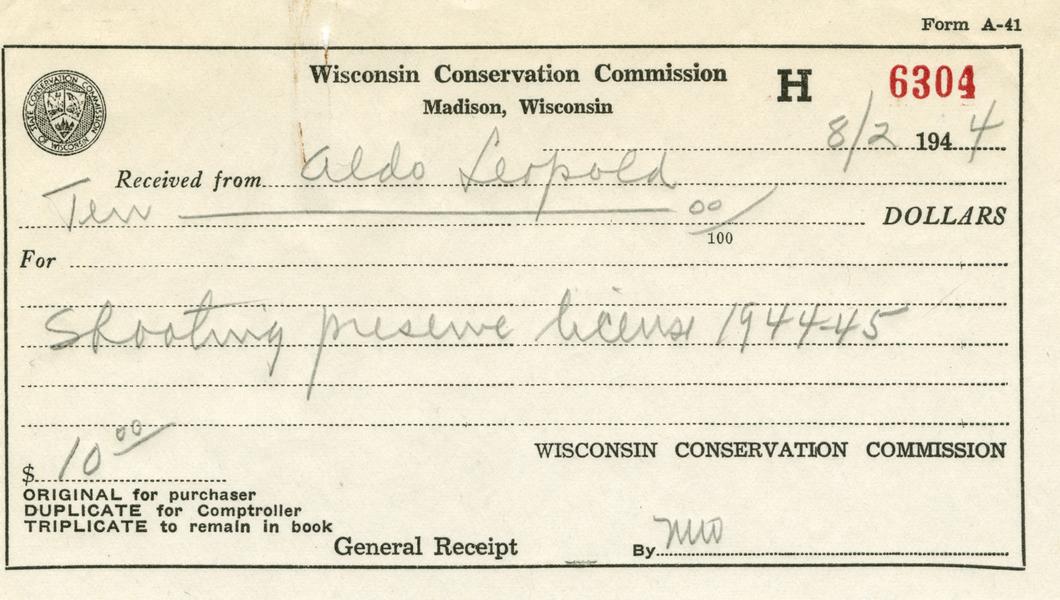 Form A-41
Wisconsin Conservation Commission
Madison, Wisconsin
H 6304
STATE CONSERVATION COMMISSION WISCONSIN
8/2 1944
Received from Aldo Leopold
Ten 00/100 DOLLARS
For
Shooting preserve license 1944-45
$ 10 00
WISCONSIN CONSERVATION COMMISSION
ORIGINAL for purchaser
DUPLICATE for Comptroller
TRIPLICATE to remain in book
General Receipt
By